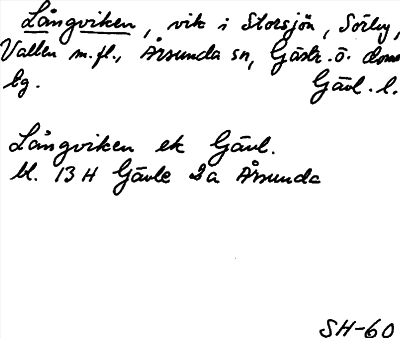 Långviken, vik i Storsjön, Sörby,
Vallen m.fl., Årsunda sn, Gästr. ö. doms
bg. Gävl. l.
Långviken ek Gävl.
bl. 13 H Gävle 2a Årsunda
SH-60